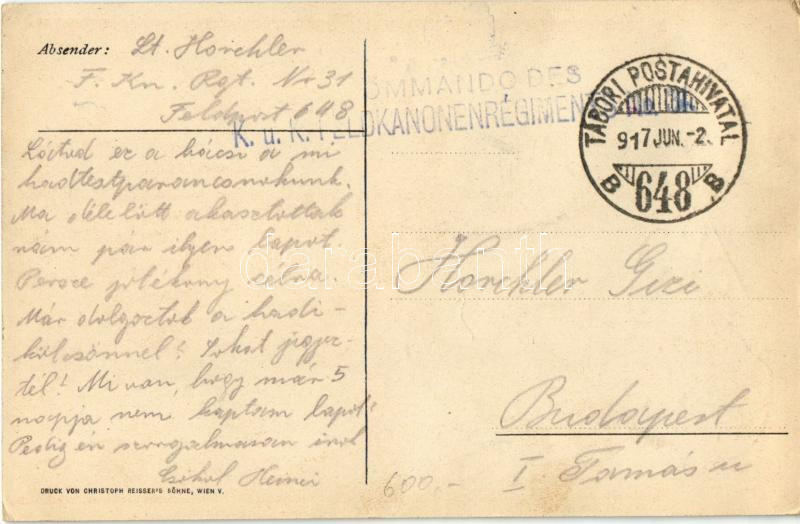 Absender: Lt. Horchler
F. Kn. Rgt. Nr 31
Feldpost 648
KOMMANDO DES
K. u. K. FELDKANONENREGIMENTS
TÁBORI POSTAHIVATAL
917 JUN. -2.
B 648 B
Látod ez a bácsi a mi
hadtestparancsnokunk.
Ma délelőtt akasztottak
rám pár ilyen lapot.
Persze jótékony célra.
Már dolgoztok a hadi-
kölcsönnel? Sokat jegyez-
tél? Mi van, hogy már 5
napja nem kaptam lapot?
Pedig én szorgalmasan írok
Csókol Heini
Horchler Gizi
Budapest
I Tamás u
600.-
DRUCK VON CHRISTOPH REISSER'S SÖHNE, WIEN V.
darabanth